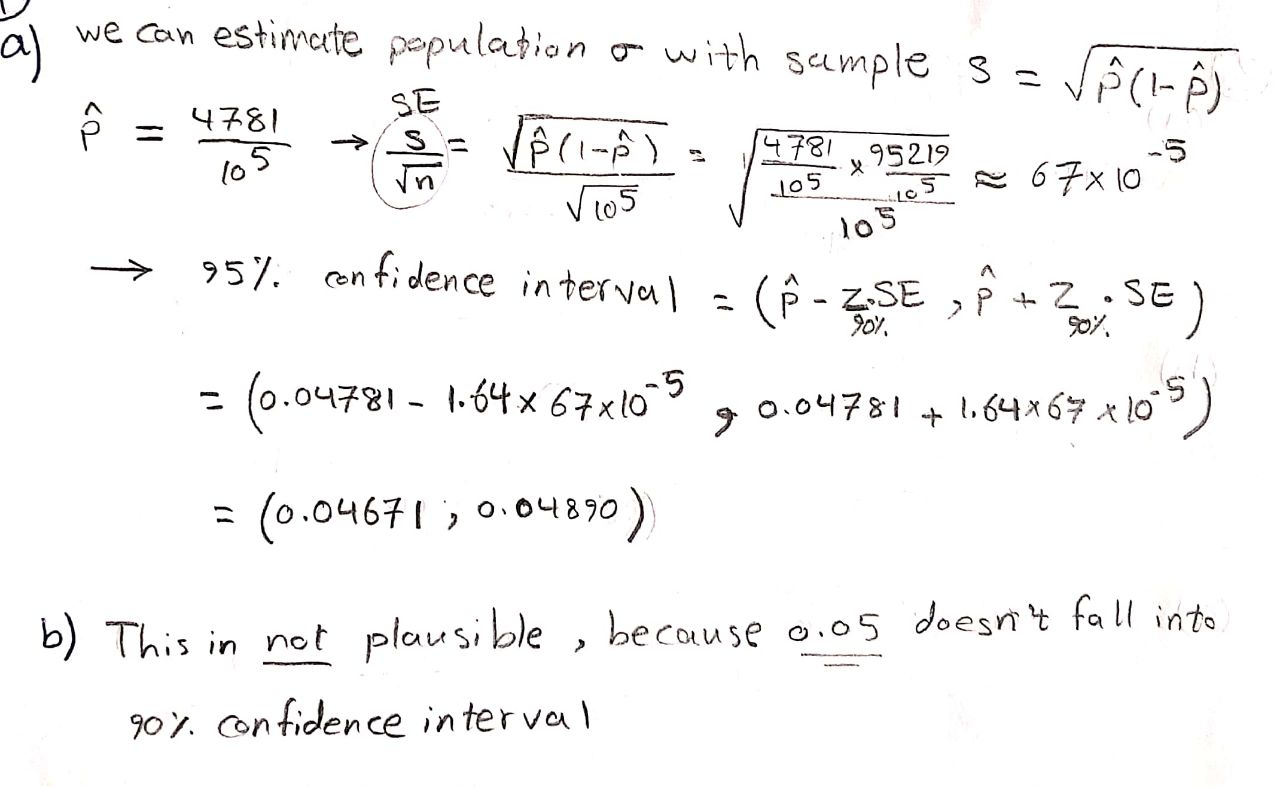 a) we can estimate population σ with sample s = √p̂(1-p̂)
p̂ = 4781/10⁵ → SE s/√n = √p̂(1-p̂)/√10⁵ = √(4781/10⁵ × 95219/10⁵)/10⁵ ≈ 67×10⁻⁵
→ 95%. confidence interval = (p̂ - Z₉₀%.SE , p̂ + Z₉₀% . SE)
= (0.04781 - 1.64 × 67×10⁻⁵ , 0.04781 + 1.64×67 ×10⁻⁵)
= (0.04671 , 0.04890)
b) This in not plausible , because 0.05 doesn't fall into
90%. confidence interval